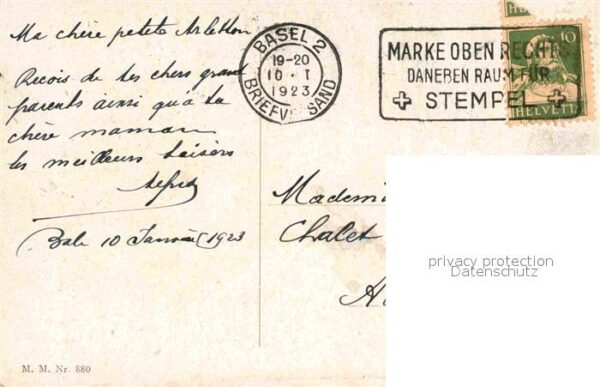 Ma chère petite Arletton
Reçois de tes chers grand
parents ainsi qu'à ta
chère maman
les meilleurs baisers
Bale 10 Janvier 1923
BASEL 2
19-20
10 · I
1923
BRIEFVERSAND
MARKE OBEN RECHTS
DANEBEN RAUM FÜR
STEMPEL
10
HELVETIA
Mademoi
Chalet
privacy protection
Datenschutz
M. M. Nr. 880